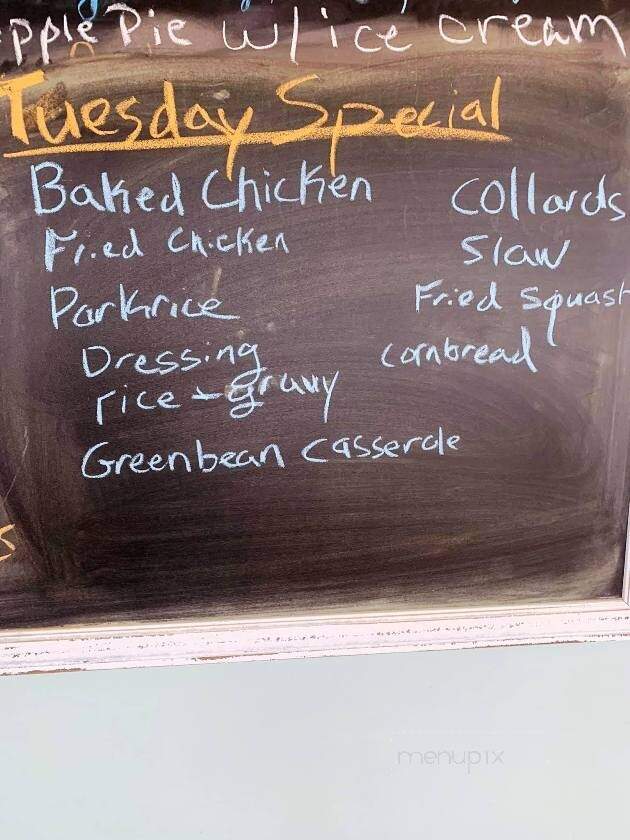 pple Pie w/ ice cream
Tuesday Special
Baked Chicken
Fried Chicken
Porkrice
Dressing
rice + gravy
Greenbean Casserole
Collards
Slaw
Fried Squash
Cornbread
s
menupix